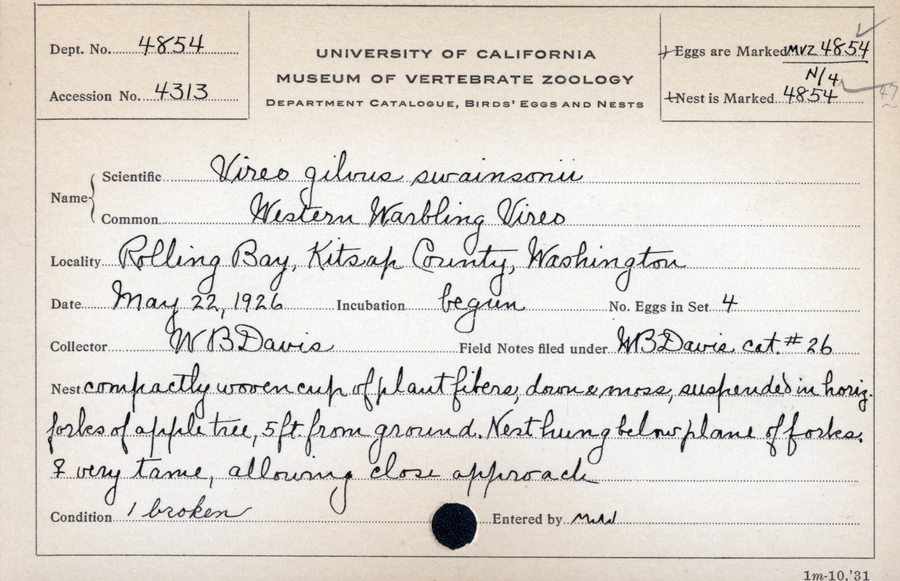 Dept. No. 4854
Accession No. 4313
UNIVERSITY OF CALIFORNIA
MUSEUM OF VERTEBRATE ZOOLOGY
DEPARTMENT CATALOGUE, BIRDS' EGGS AND NESTS
Eggs are Marked MVZ 4854
N/4
Nest is Marked 4854
Name
Scientific Vireo gilvus swainsonii
Common Western Warbling Vireo
Locality Rolling Bay, Kitsap County, Washington
Date May 22, 1926 Incubation begun No. Eggs in Set 4
Collector W B Davis Field Notes filed under WBDavis cat. # 26
Nest compactly woven cup of plant fibers, down & moss, suspended in horiz.
forks of apple tree, 5 ft. from ground. Nest hung below plane of forks.
♀ very tame, allowing close approach
Condition 1 broken Entered by
1m-10,'31